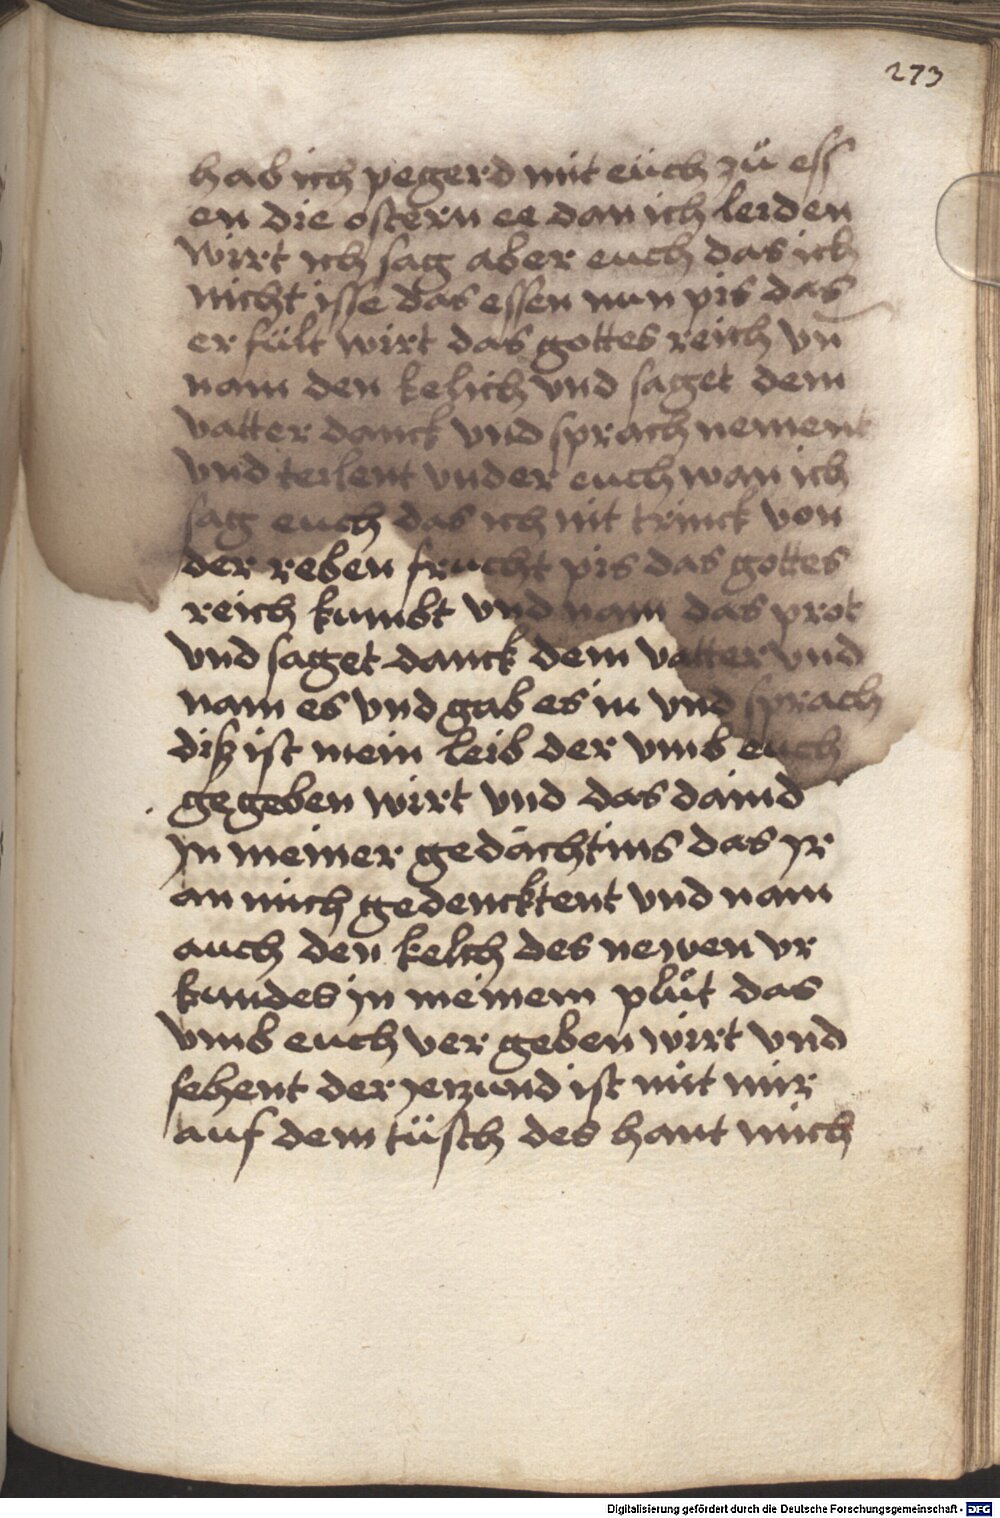 273
hab ich pegerd mit eüch zů ess
en die ostern ee dan ich leiden
wirt ich sag aber euch das ich
nicht isse das essen nun pis das
er fült wirt das gottes reich vn
nam den kelich vnd saget dem
vatter danck vnd sprach nement
vnd teilent vnder euch wan ich
sag euch das ich nit trinck von
der reben frucht pis das gottes
reich kumbt vnd nam das prot
vnd saget danck dem vatter vnd
nam es vnd gab es in vnd sprach
disz ist mein leib der vmb euch
gegeben wirt vnd das
in meiner gedächtnus das yr
an mich gedencktent vnd nam
auch den kelch des newen vr
kundes in meinem plůt das
vmb euch ver geben wirt vnd
sehent der yetzund ist mit mir
auf dem tüsch des hant mich
Digitalisierung gefördert durch die Deutsche Forschungsgemeinschaft - DFG